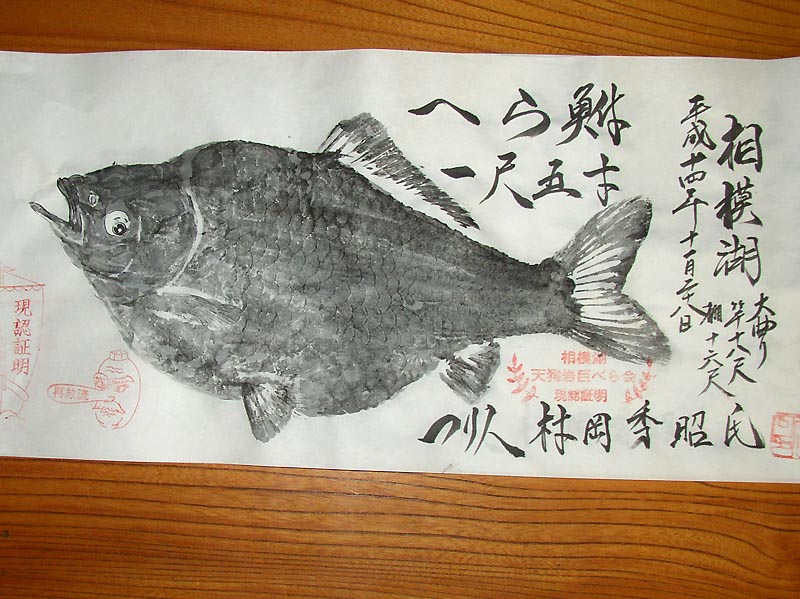 へら鮒
一尺五寸
相模湖
平成十四年十一月二十八日
大曲り
竿十八尺
棚十六尺
相模湖
天狗岩巨べら会
現認証明
つり人 林岡秀昭氏
現認証明